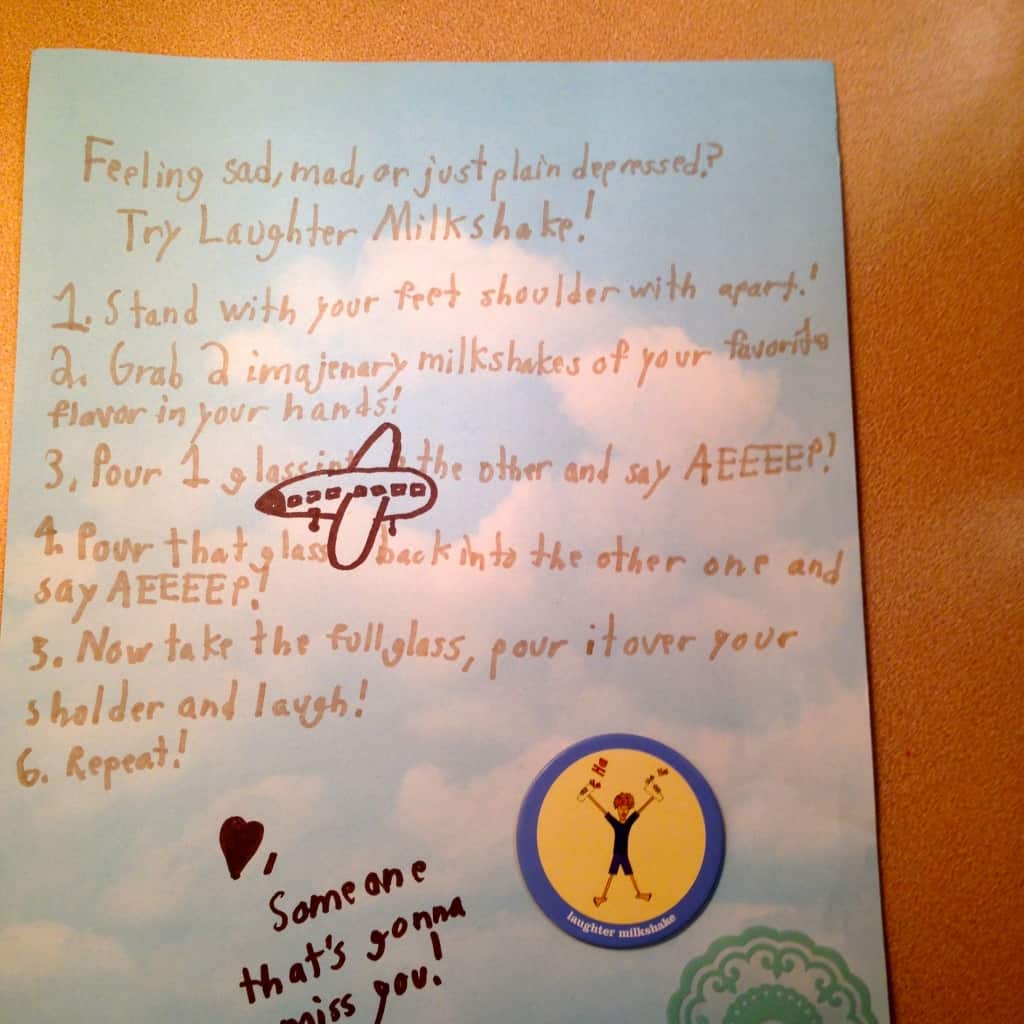 Feeling sad, mad, or just plain depressed?
Try Laughter Milkshake!
1. Stand with your feet shoulder with apart!
2. Grab 2 imajenary milkshakes of your favorite
flavor in your hands!
3. Pour 1 glass the other and say AEEEEP!
4. Pour that glass back into the other one and
say AEEEEP!
5. Now take the full glass, pour it over your
sholder and laugh!
6. Repeat!
Someone
that's gonna
miss you!
Ha
laughter milkshake